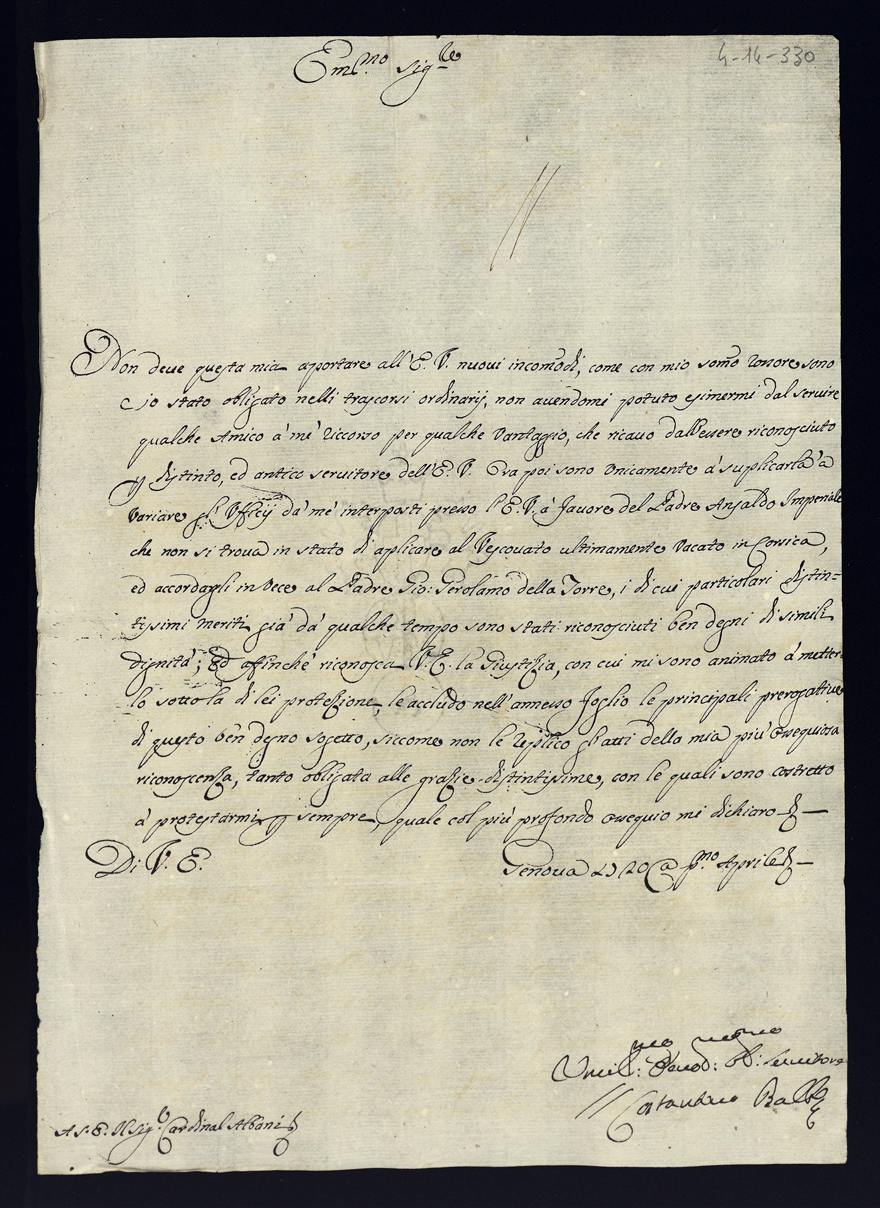 4-14-330
Em.mo Sig.re
Non deve questa mia apportare all'E. V. nuovi incomodi, come con mio somo rossore sono
io stato obligato nelli trascorsi ordinarij, non avendomi potuto esimermi dal servire
qualche Amico à mè riccorso per qualche vantaggio, che ricavo dall'essere riconosciuto
distinto, ed antico servitore dell'E. V. Ora poi sono unicamente à suplicarla à
variare gl'Ufficij dà mè interposti presso l'E. V. à favore del Padre Ansaldo Imperiale
che non si trova in stato di aplicare al Vescovato ultimamente vacato in Corsica,
ed accordagli in vece al Padre Gio: Gerolamo della Torre, i di cui particolari distin=
tissimi meriti già dà qualche tempo sono stati riconosciuti ben degni di simili
dignità; Ed affinche riconosca V. E. la Giustizia, con cui mi sono animato à metter
lo sotto la di lei protezione, le accludo nell'annesso foglio le principali prerogative
di questo ben degno sogetto, siccome non le replico gl'atti della mia più ossequiosa
riconoscenza, tanto obligata alle grazie distintissime, con le quali sono costretto
à protestarmi sempre, quale col più profondo ossequio mi dichiaro
Di V. E.
Genova p.mo Aprile
Umil.mo Devod: Ob: Servitore
Costantino Balbi
A S. E. Il Sig.r Cardinal Albani